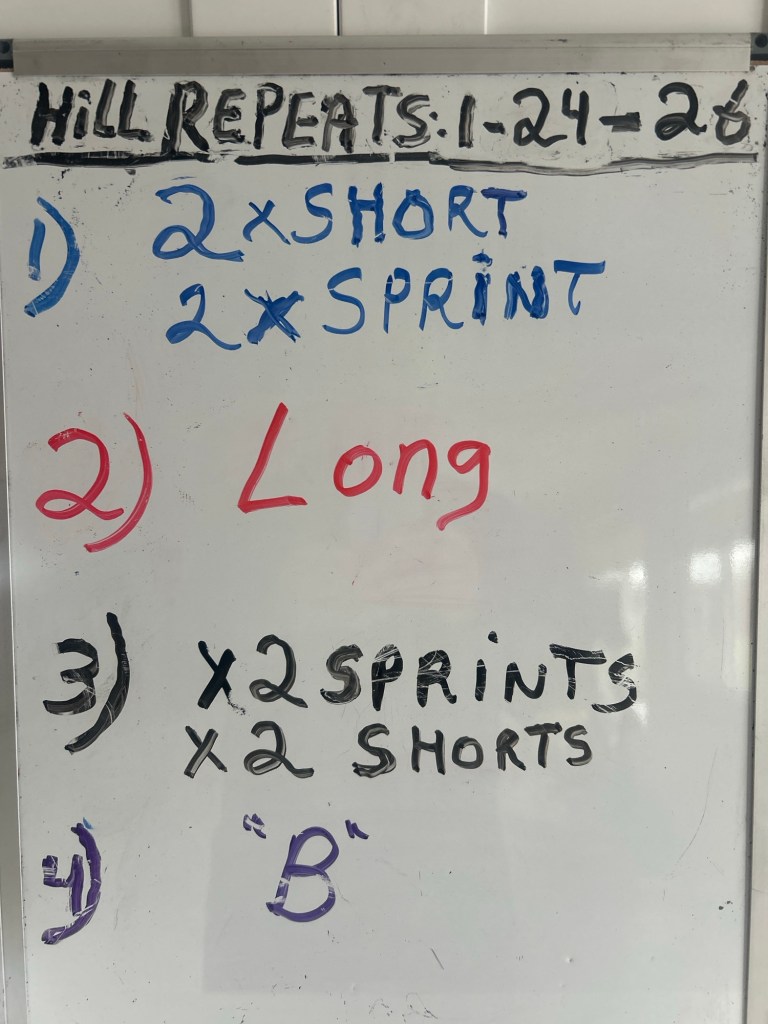 HiLL REPEATS: 1-24-26
1) 2 x SHORT
2 x SPRiNT
2) Long
3) x2 SPRiNTS
x2 SHORTS
4) "B"